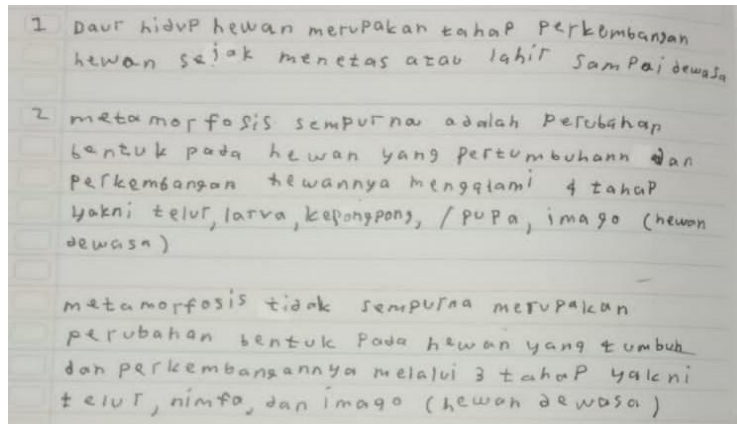 1 Daur hidup hewan merupakan tahap perkembangan
hewan sejak menetas atau lahir sampai dewasa
2 metamorfosis sempurna adalah Perubahan
bentuk pada hewan yang pertumbuhann dan
perkembangan hewannya mengalami 4 tahap
yakni telur, larva, kepongpong, / pupa, imago (hewan
dewasa)
metamorfosis tidak sempurna merupakan
perubahan bentuk Pada hewan yang tumbuh
dan perkembangannya melalui 3 tahap yakni
telur, nimfa, dan imago (hewan dewasa)